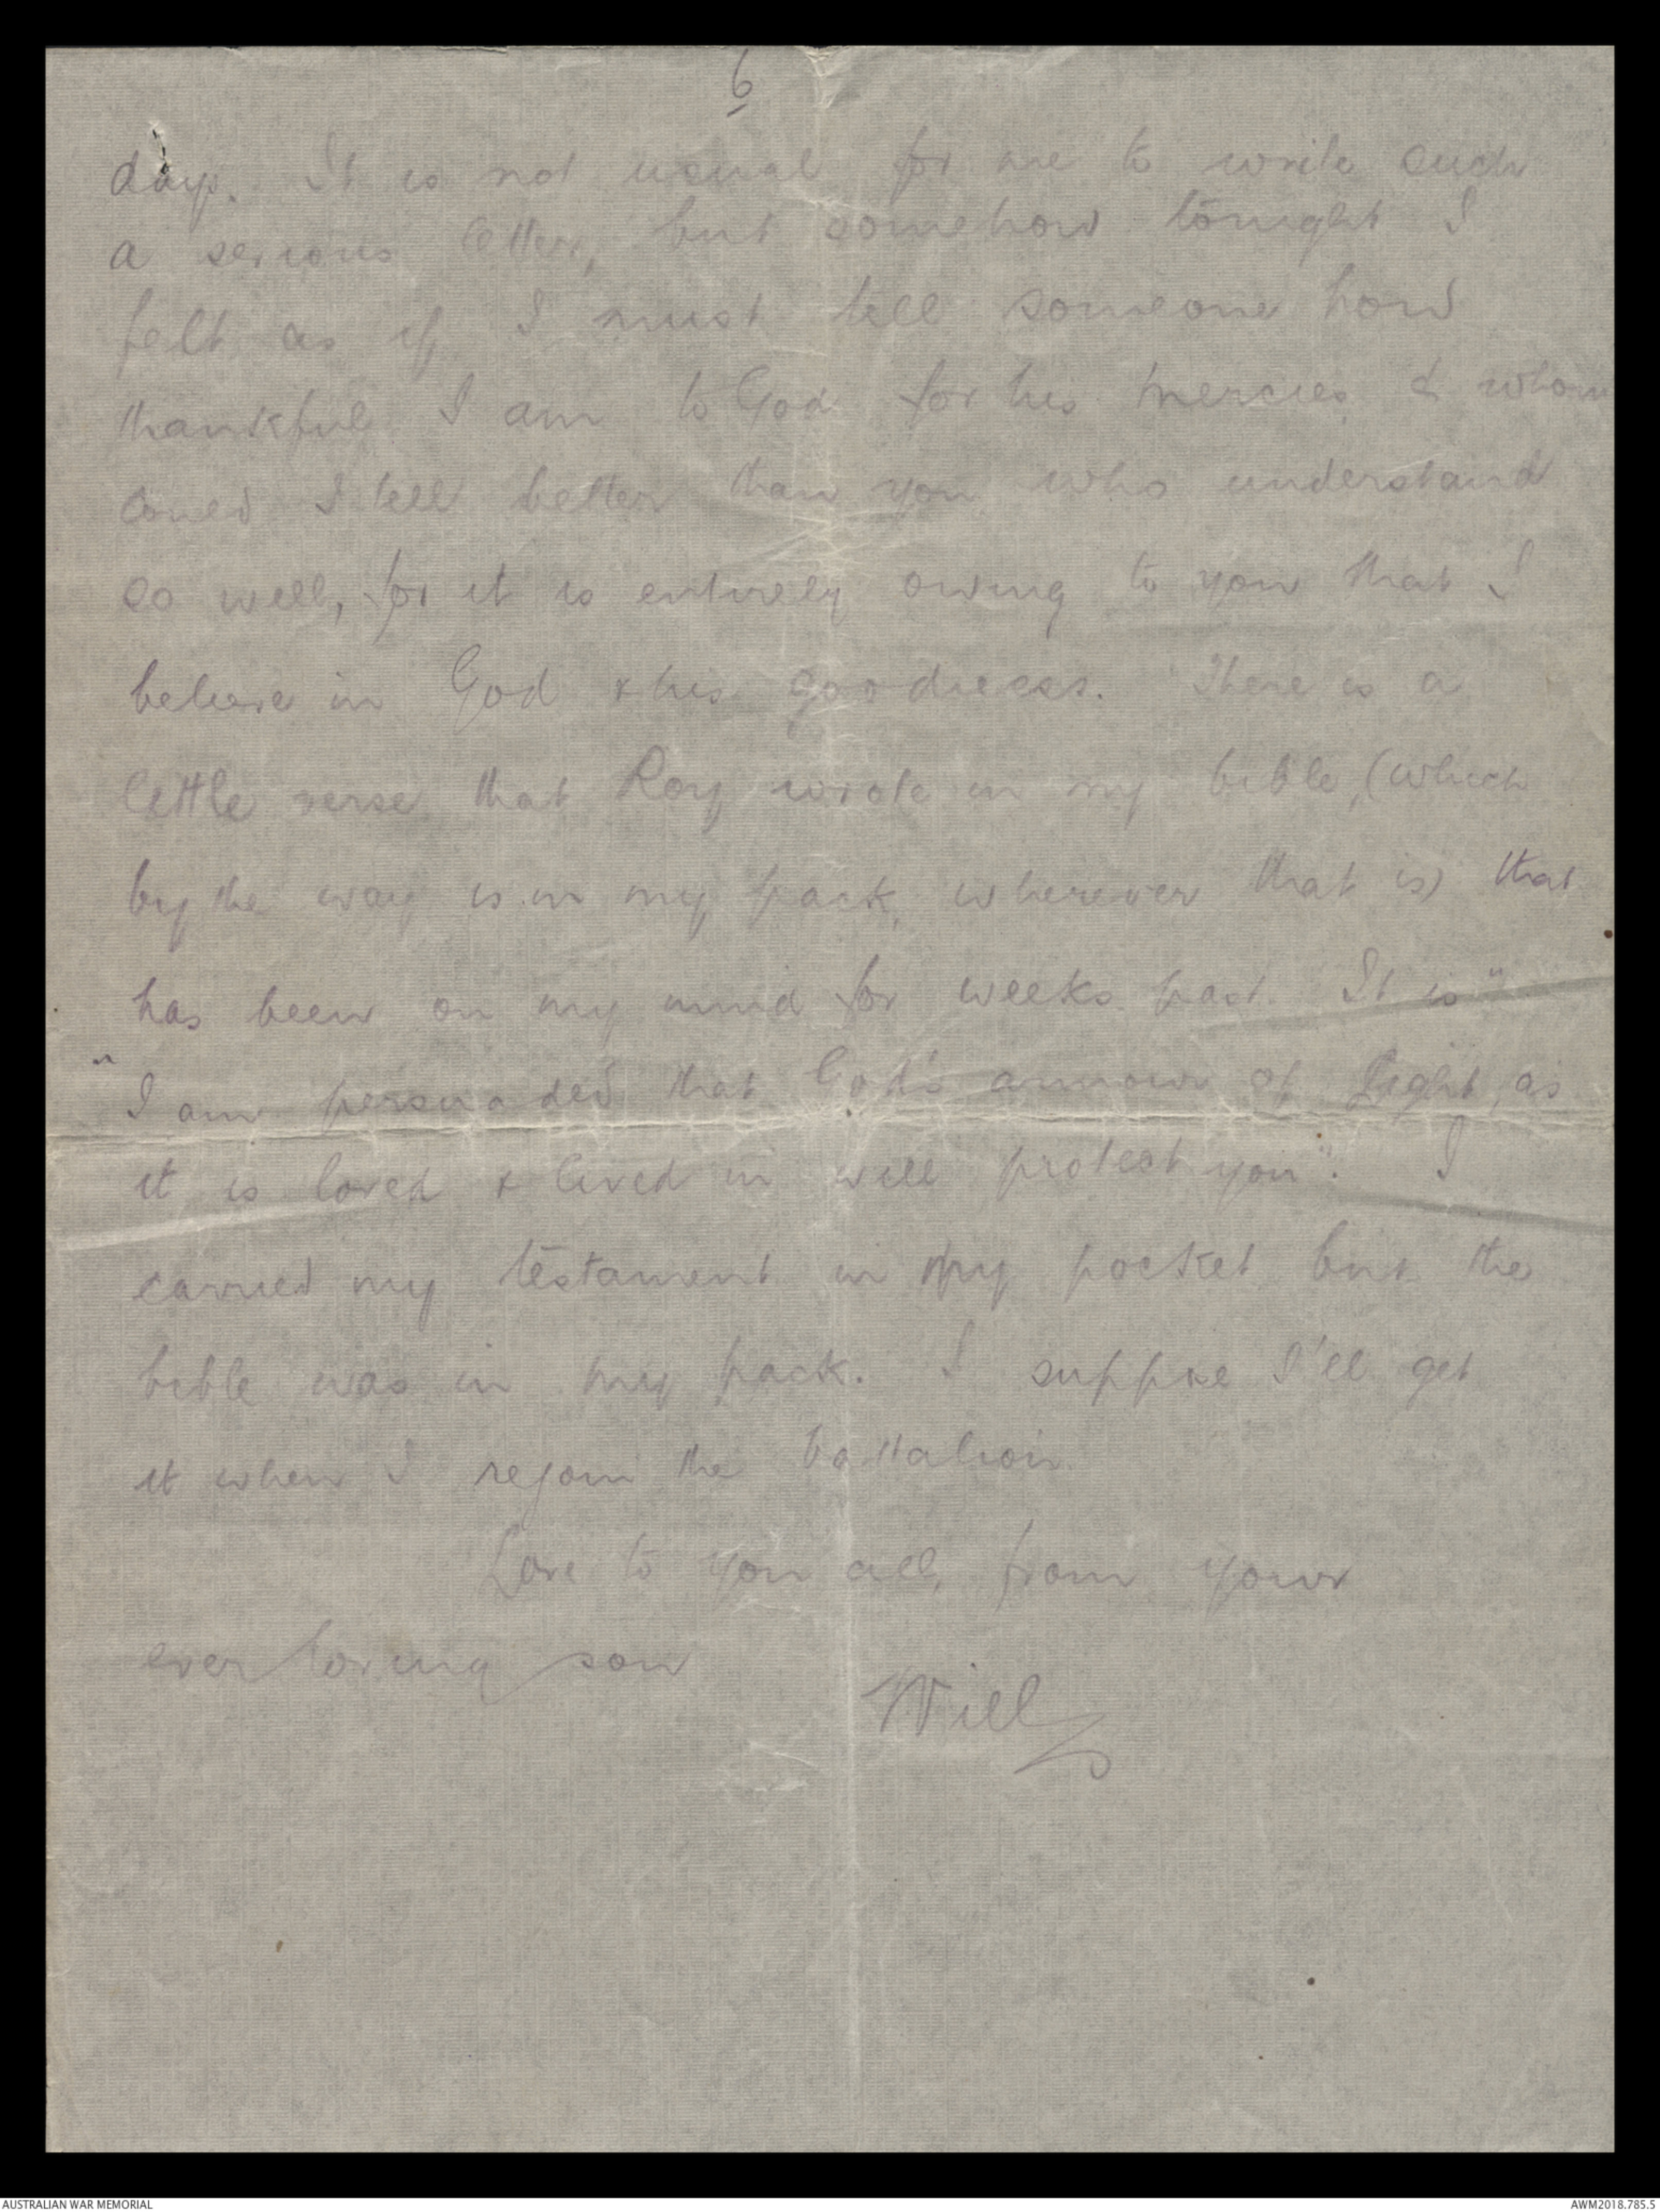 6
days. It is not usual for me to write such
a serious letter, but somehow tonight I
felt as if I must tell someone how
thankful I am to God for his mercies & whom
could I tell better than you who understand
so well, for it is entirely owing to you that I
believe in God & his goodness. There is a
little verse that Roy wrote in my bible, (which
by the way is in my pack, wherever that is) that
has been on my mind for weeks past. It is"
"I am persuaded that God's armour of Light, as
it is loved & lived in will protect you". I
carried my testament in my pocket but the
bible was in my pack. I suppose I'll get
it when I rejoin the battalion.
Love to you all, from your
ever loving son
Will
AUSTRALIAN WAR MEMORIAL
AWM2018.785.5